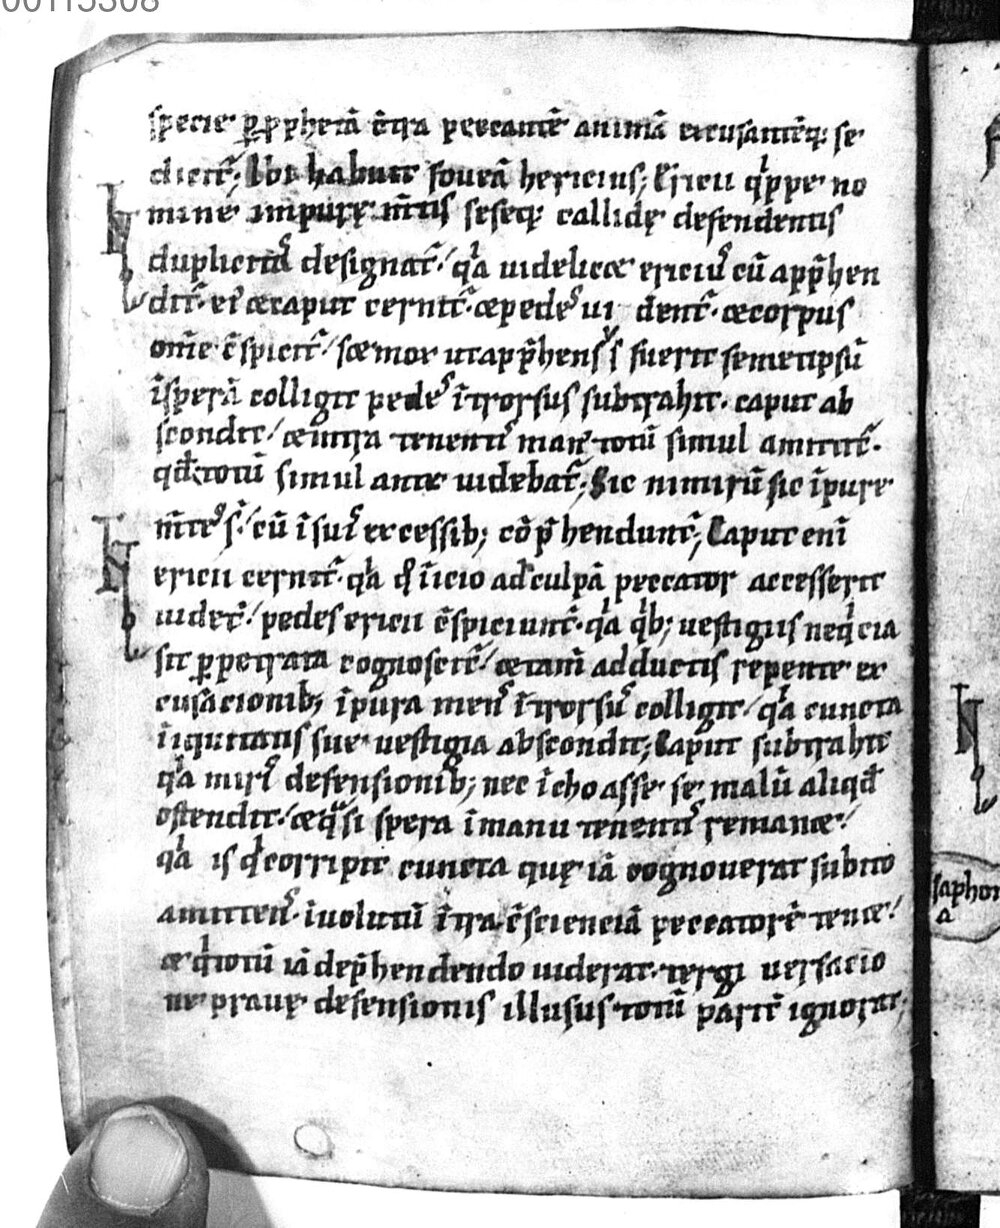 00115308
specie ꝑ ꝓphetā ɔ̄tra peccantē animā excusantēq; se
dicit᷑; Ibi habuit foueā hericius; Ericii qͥppe no
mine impurę m̄tis seseq; callidę defendentis
duplicitaˢ designat᷑. qͣ uidelicet ericiuˢ cū app̄hen
dit᷑. ei᷒ et caput cernit᷑. et pedeˢ uidentᷣ. et corpus
om̄e ɔ̄spicit᷑. s; mox ut app̄hensus fuerit semetipsū
ī sperā colligit pedeˢ ītrorsus subtrahit. caput ab
scondit. et intra tenentiˢ manꝰ totū simul amittit᷑.
qd̄ totū simul ante uidebat᷑; Sic nimirū sic īpure
m̄teˢ s̄. cū ī suiˢ excessib; cōp̄hendunt᷑; Caput eni̅
ericii cernit᷑. qͣ qͦ īicio ad culpā peccator accesserit
uidet᷑. pedes ericii ɔ̄spiciunt᷑. qͣ qͥb; uestigiis neqͥcia
sit ꝑpetrata cognoscit᷑. et tam̄ adductis repente ex
cusacionib; īpura menˢ ītrorsuˢ colligit. qͣ cuncta
īiquitatis sue uestigia abscondit; Caput subtrahit
qͣ miriˢ defensionib; nec īchoasse se malū aliqd̄
ostendit. et qͣsi spera ī manu tenentiˢ remanet.
qͣ is qͥ corripit cuncta quę iā cognouerat subito
amittenˢ. īuolutū ītra ɔ̄scienciā peccatorē tenet.
et qͥ totū iā dep̄hendendo uiderat. tergi uersacio
ne prauę defensionis illusus totū parit᷑ ignorat;
saphon
a